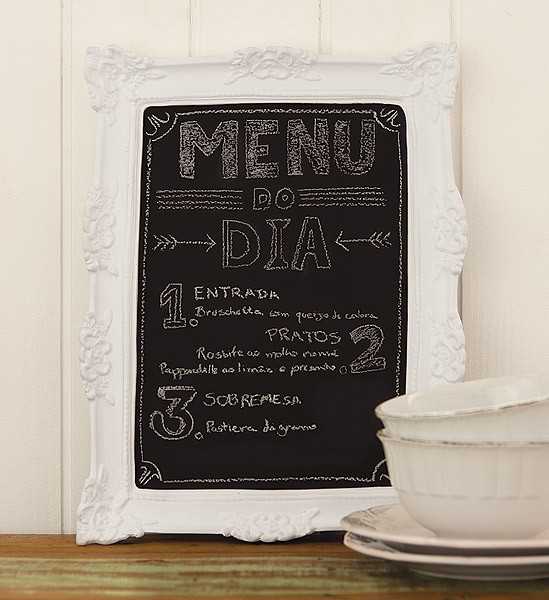 MENU
DO
DIA
1. ENTRADA
Bruschetta com queijo de cabra
PRATOS 2.
Rosbife ao molho
Pappardelle ao limão e presunto
3. SOBREMESA
Pastiera di grano